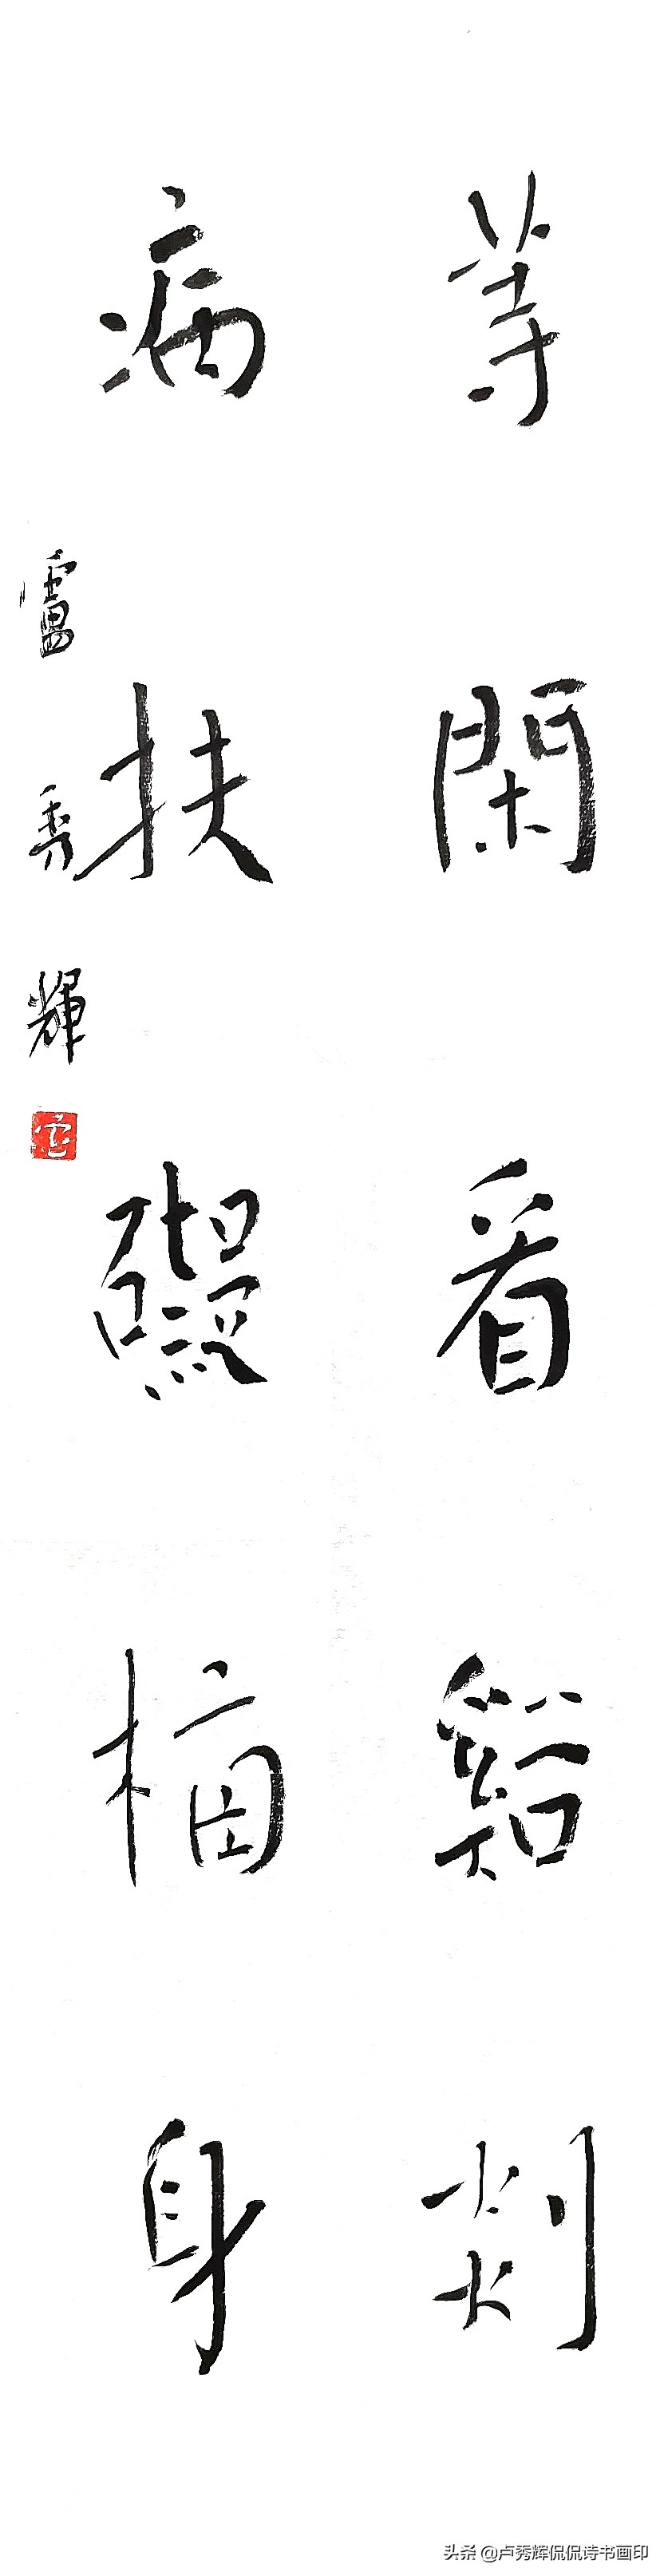 等閑看谿剡
病扶身
盧秀輝
头条 @卢秀辉侃侃诗书画印